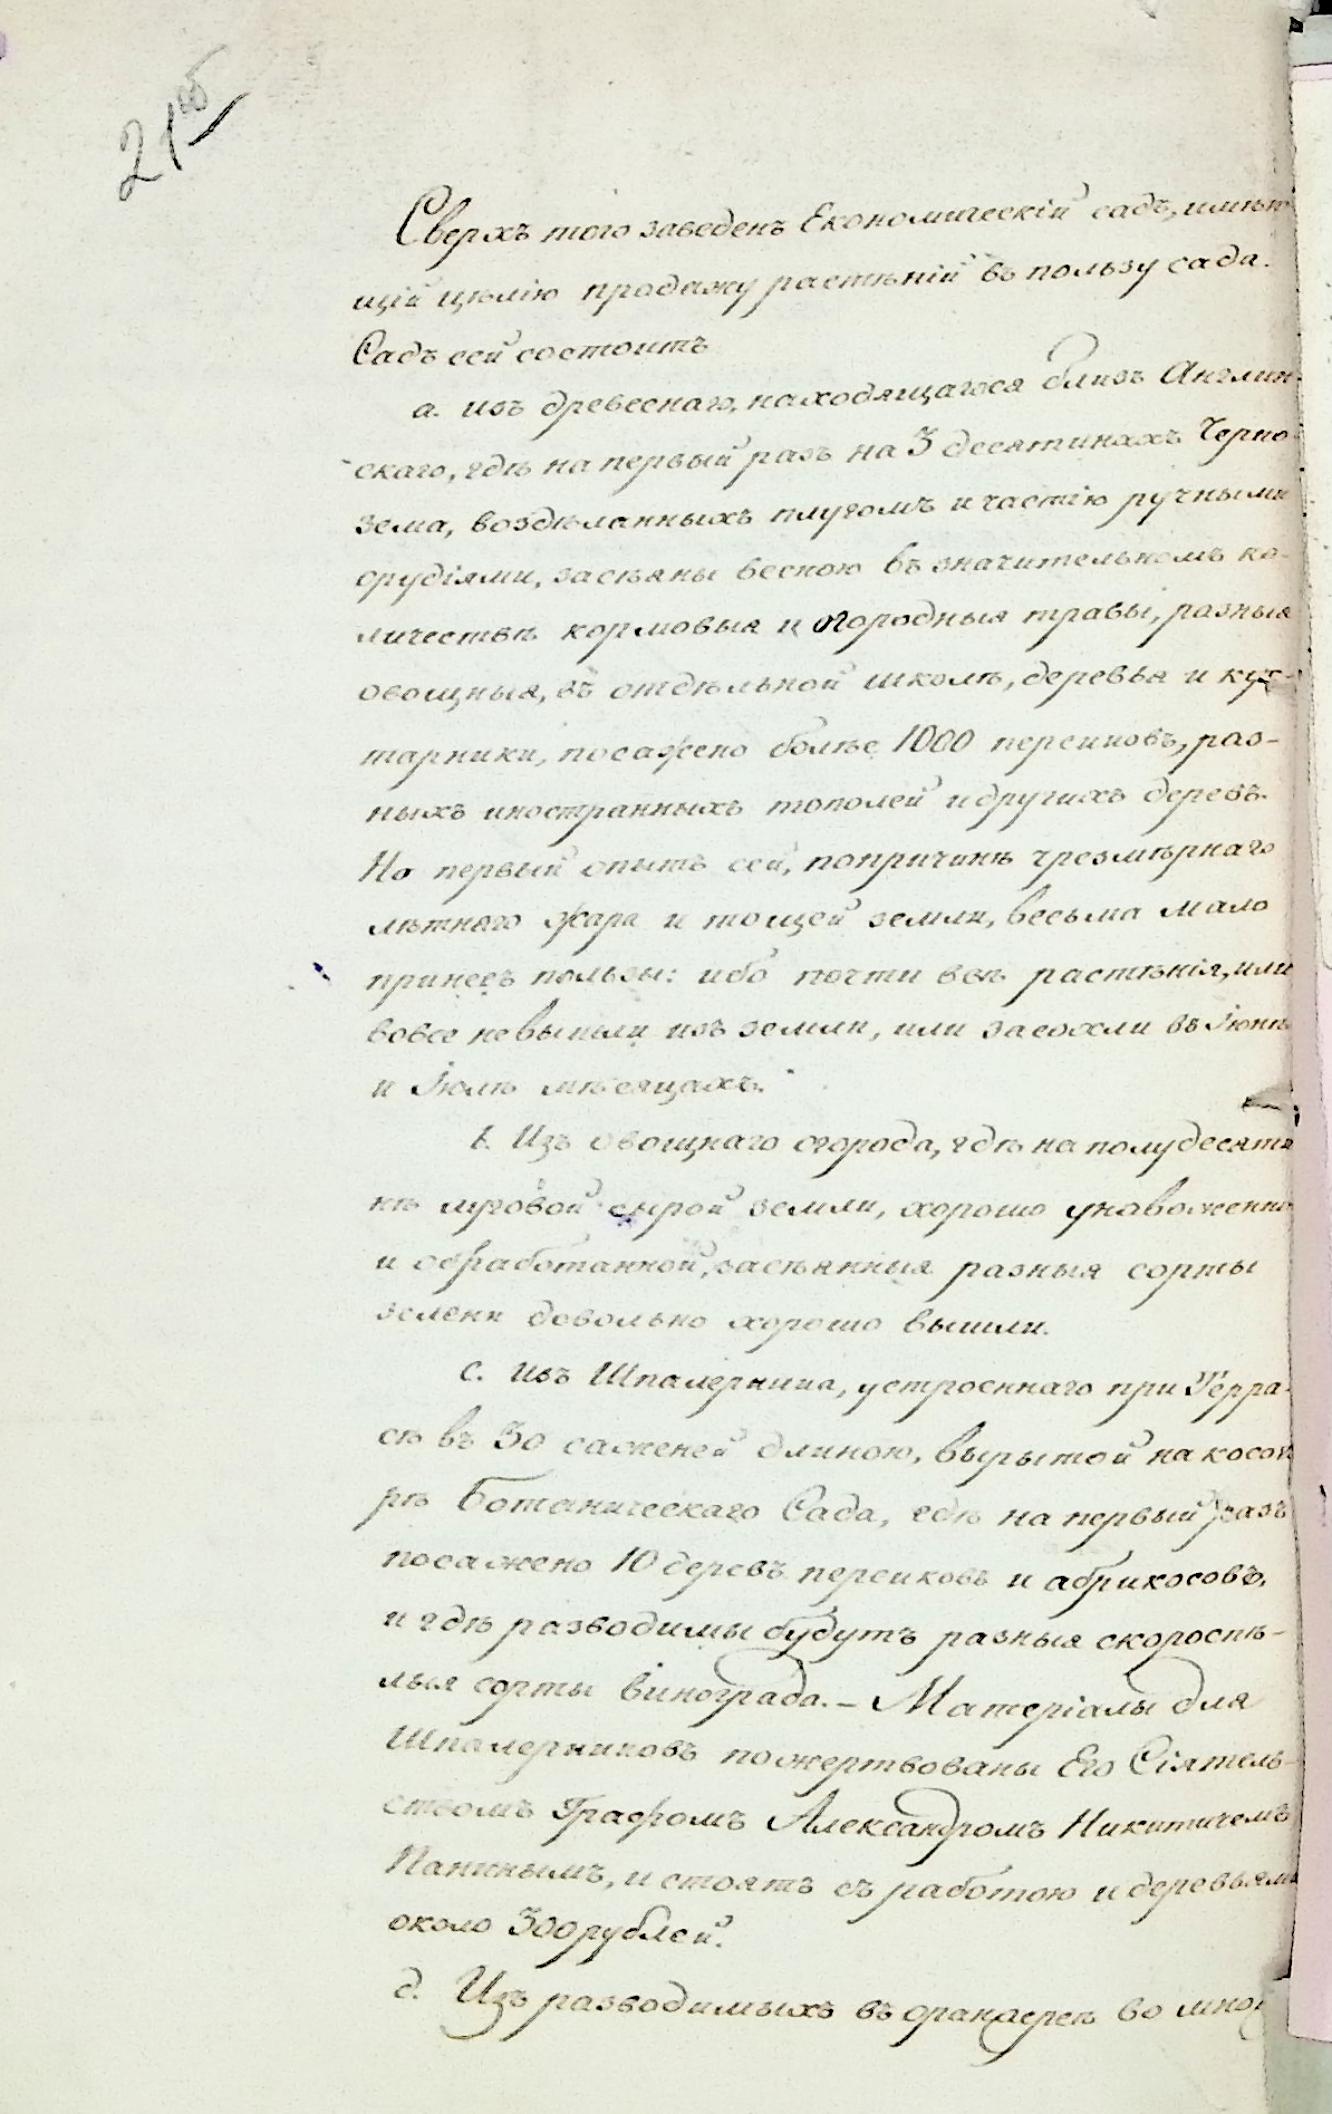 21об
Сверхъ того заведенъ Економическій садъ, имѣю
щій цѣлію продажу растѣній въ пользу сада.
Садъ сей состоитъ
а. изъ древеснаго, находящагося близъ Англин-
скаго, гдѣ на первый разъ на 3 десятинахъ Черно-
зема, воздѣланныхъ плугомъ и частію ручными
орудіями, засѣяны весною въ значительномъ ко-
личествѣ кормовыя и огородныя травы, разныя
овощныя, въ отдѣльной школѣ, деревья и кус-
тарники, посажено болѣе 1000 персиковъ, раз-
ныхъ иностранныхъ тополей и другихъ деревъ.
Но первый опытъ сей, по причинѣ чрезмѣрнаго
лѣтняго жара и тощей земли, весьма мало
принесъ пользы: ибо почти всѣ растѣнія, или
вовсе не вышли изъ земли, или засохли въ Іюнѣ
и Іюлѣ мѣсяцахъ.
b. Изъ овощнаго огорода, гдѣ на полудесяти
нѣ луговой сырой земли, хорошо унавоженно
и обработанной, засѣянныя разныя сорты
зелени довольно хорошо вышли.
с. изъ Шпалерника, устроеннаго при Терра-
сѣ въ 30 саженей длиною, вырытой на косого
рѣ Ботаническаго Сада, гдѣ на первый разъ
посажено 10 деревъ персиковъ и абрикосовъ,
и гдѣ разводимы будутъ разныя скороспѣ-
лыя сорты винограда. – Матеріалы для
Шпалерниковъ пожертвованы Его Сіятель-
ствомъ Графомъ Александромъ Никитичемъ
Панинымъ, и стоятъ съ работою и деревьями
около 300 рублей.
д. Изъ разводимыхъ въ оранжереѣ во мног